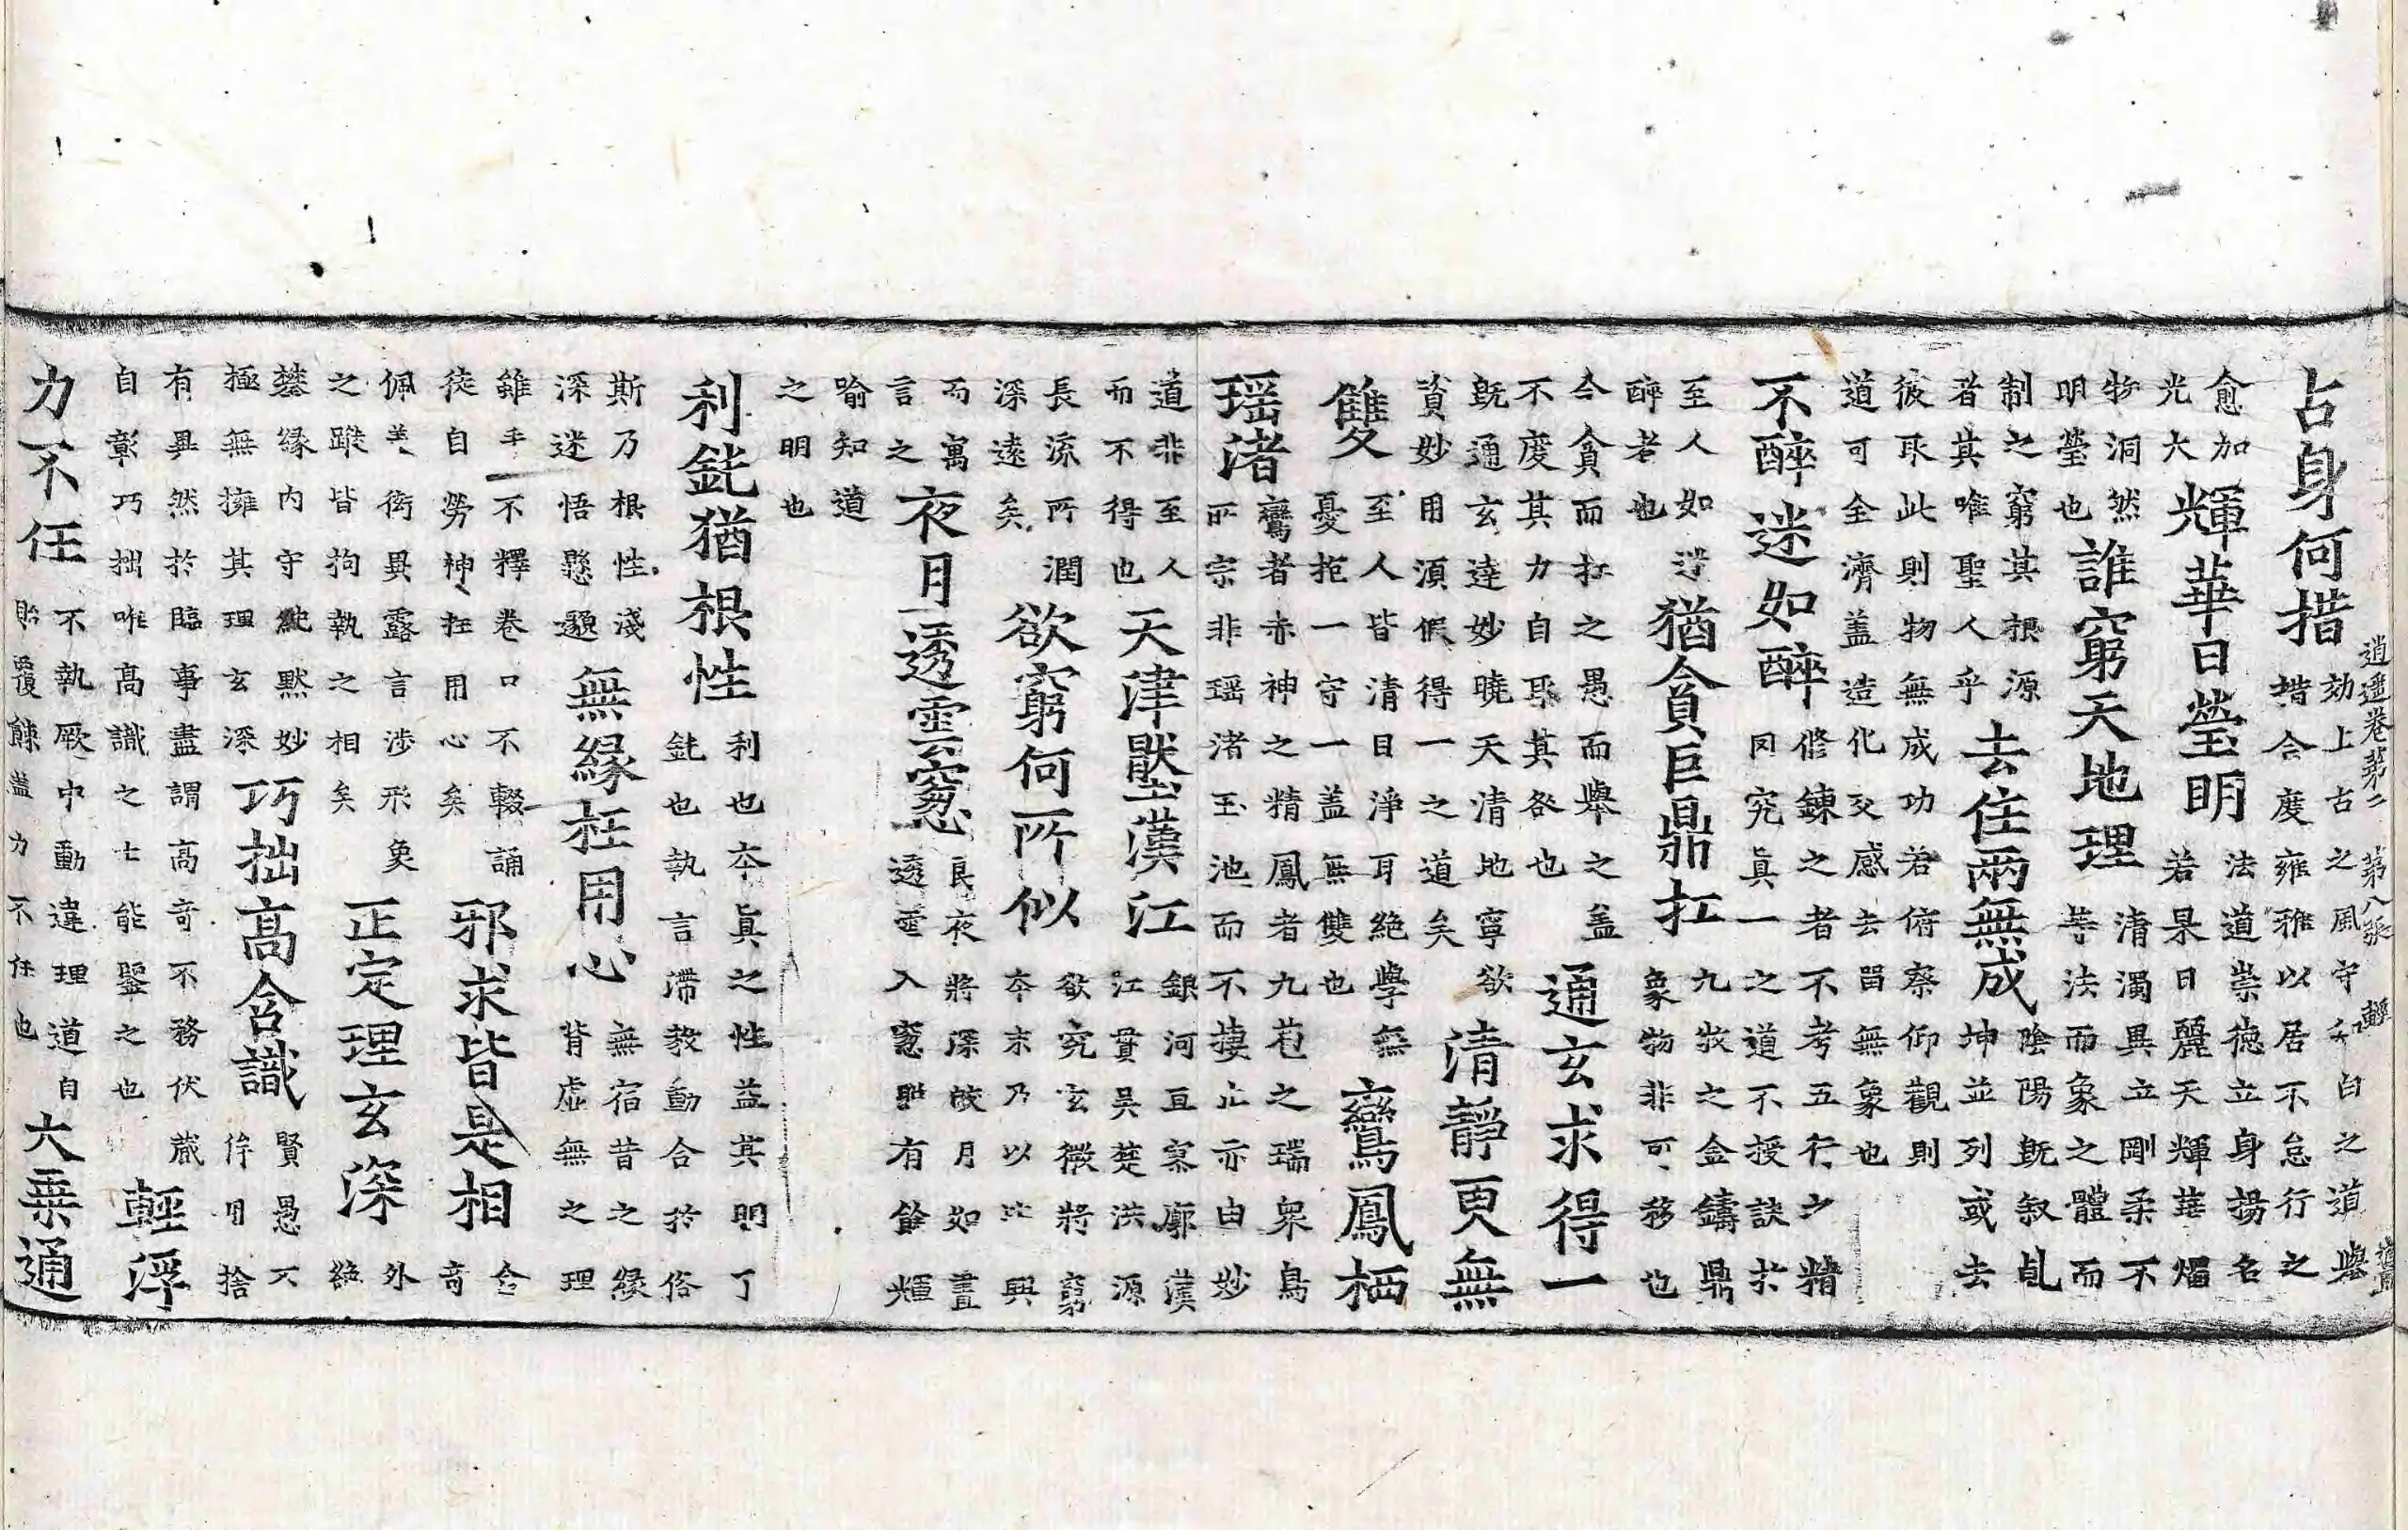 逍遥卷第二　第八張
占身何措
効上古之風守白之道與
措合度雍雅以居不怠行之
愈加
光大
輝華日瑩明
法道崇德立身揚名
若杲日麗天輝華燭
物洞然
明瑩也
誰窮天地理
清濁異立剛柔不
等法而象之體而
制之窮其根源
者其唯聖人乎
去住兩無成
陰陽既叙乹
坤並列或去
彼取此則物無成功若俯察仰觀則
道可全濟盖造化交感去留無象也
不醉迷如醉
修鍊之者不考五行之精
罔究真一之道不授訣於
至人如
醉者也
猶貪巨鼎扛
九牧之金鑄鼎
象物非可移也
今貪而扛之愚而舉之盖
不度其力自取其咎也
通玄求得一
既通玄逹妙曉天清地寧欲
資妙用須假得一之道矣
清靜更無
雙
至人皆清目淨耳絶學無
憂抱一守一盖無雙也
鸞鳳栖
瑶渚
鸞者赤神之精鳳者九苞之瑞衆鳥
所宗非瑶渚玉池而不棲止亦由妙
道非至人
而不得也
天津壓漢江
銀河亘寥廓漢
江貫吳楚洪源
長流所潤
深遠矣
欲窮何所似
欲究玄微將窮
夲末乃以比興
而寓
言之
夜月透雲窓
良夜將深皎月如晝
透雲入窓眀有餘輝
喻知道
之明也
利鈍猶根性
利也夲真之性益其明了
鈍也執言滯教動合於俗
斯乃根性淺
深迷悟懸邈
無縁枉用心
無宿昔之縁
背虛無之理
雖手不釋卷口不輟誦
徒自勞神枉用心矣
邪求皆是相
含
奇
佩美衒異露言涉形象
之蹤皆拘執之相矣
正定理玄深
外
絶
攀縁内守純默妙
極無擁其理玄深
巧拙高含識
賢愚不
侔用捨
有異然於臨事盡謂高奇不務伏藏
自彰巧拙唯高識之士能鑒之也
輕浮
力不任
不執厥中動違理道自
貽覆餗盖力不任也
大乗通